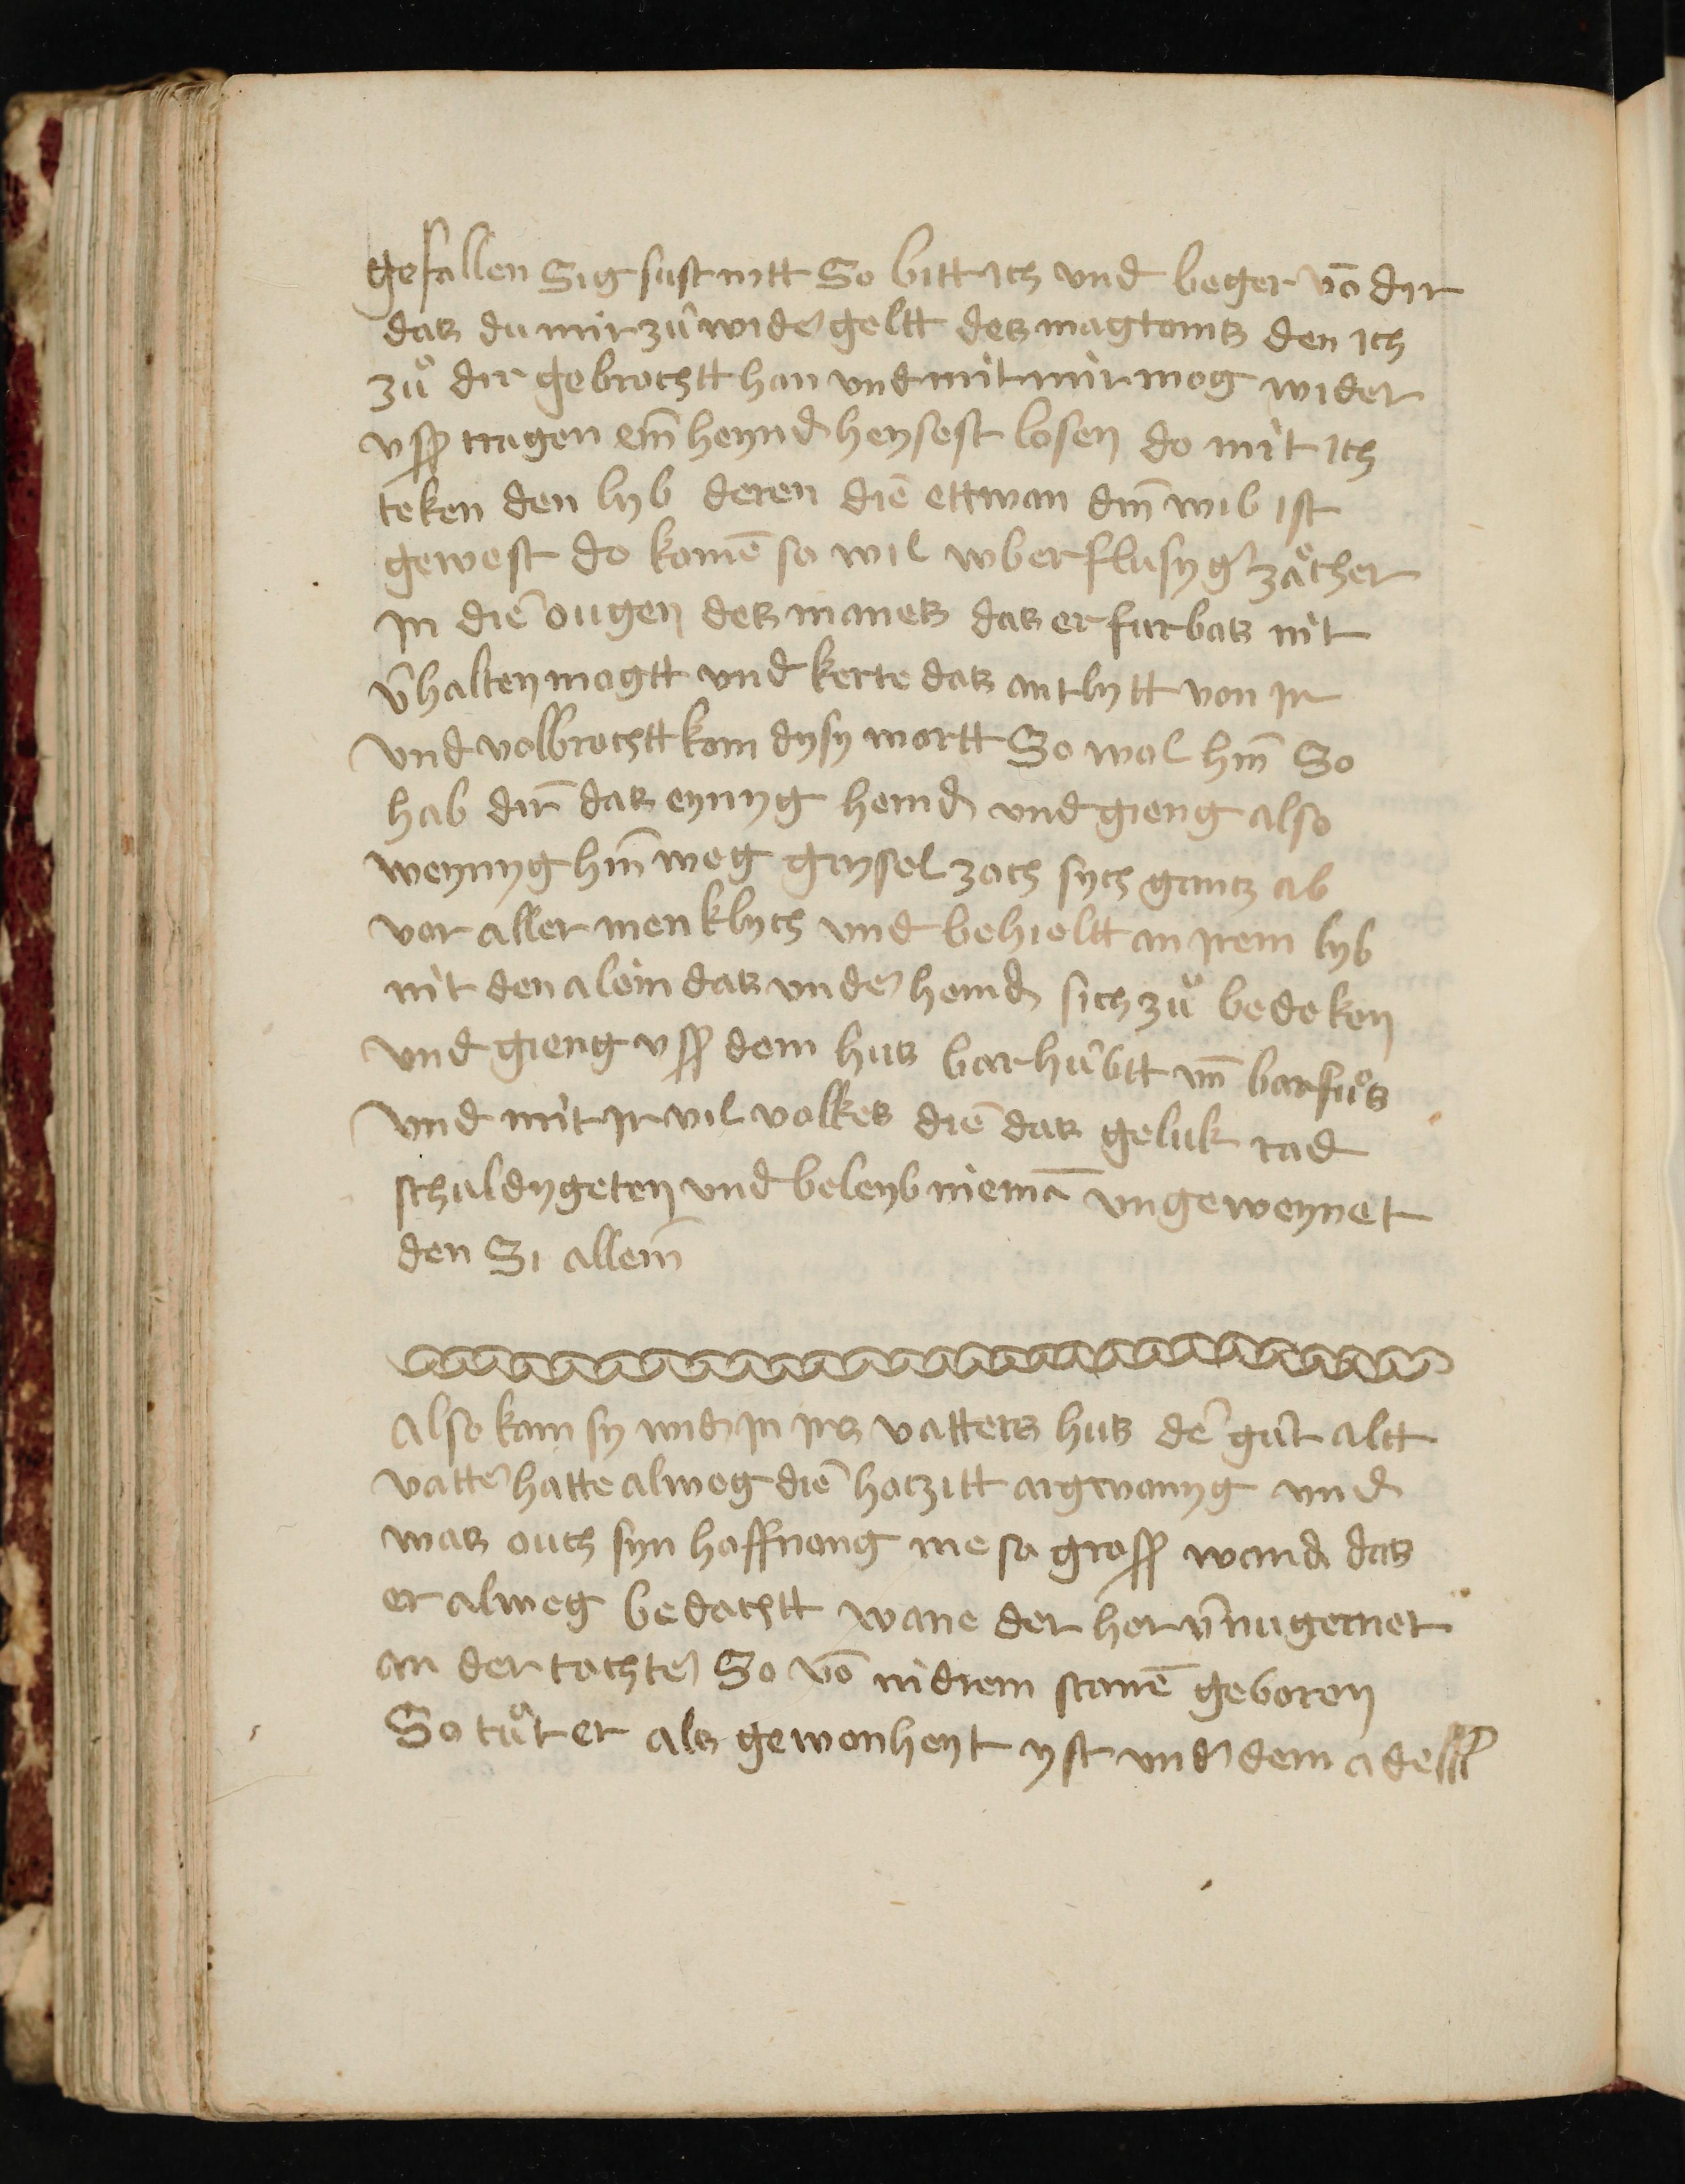 gefallen Sig sust nitt So bitt Ich vnd beger vō dyr
das du mir zuͦ widergeltt des magtoms den Ich
zuͦ dir gebrochtt han vnd mit mir mog wider
vsz tragen ein heynd heysest losen do mit Ich
teken den lyb deren die ettwan din wib ist
gewest do komē so wil wberflusyger zaͤcher
In die ougen des manes das er furbas nit
v̄halten mogtt vnd kerte das antlytt von Ir
vnd volbrochtt kom dysy wortt So wol hin So
hab dir das eynyg hemd vnd gieng also
weynyg hin weg grysel zoch sych gantz ab
vor aller menklych vnd behieltt an Irem lyb
nit den alein das vnder hemd sich zuͦ bedeken
vnd gieng vsz dem hus barhuͦbtt vn̄ barfuͦs
vnd mit Ir vil volkes die das geluk rad
schuldygeten vnd beleyb niemā vngeweynet
den Si allein
Also kam sy wider In Irs vatters hus der guͦt altt
vatter hatte alweg die hoczitt argwonyg vnd
was ouch syn hoffnong nie so grosz wand das
er alweg bedochtt wane der her v̄nugernet
an der tochter So vō nidrem stamē geboren
So tuͦt er als gewonheyt yst vnder dem adell